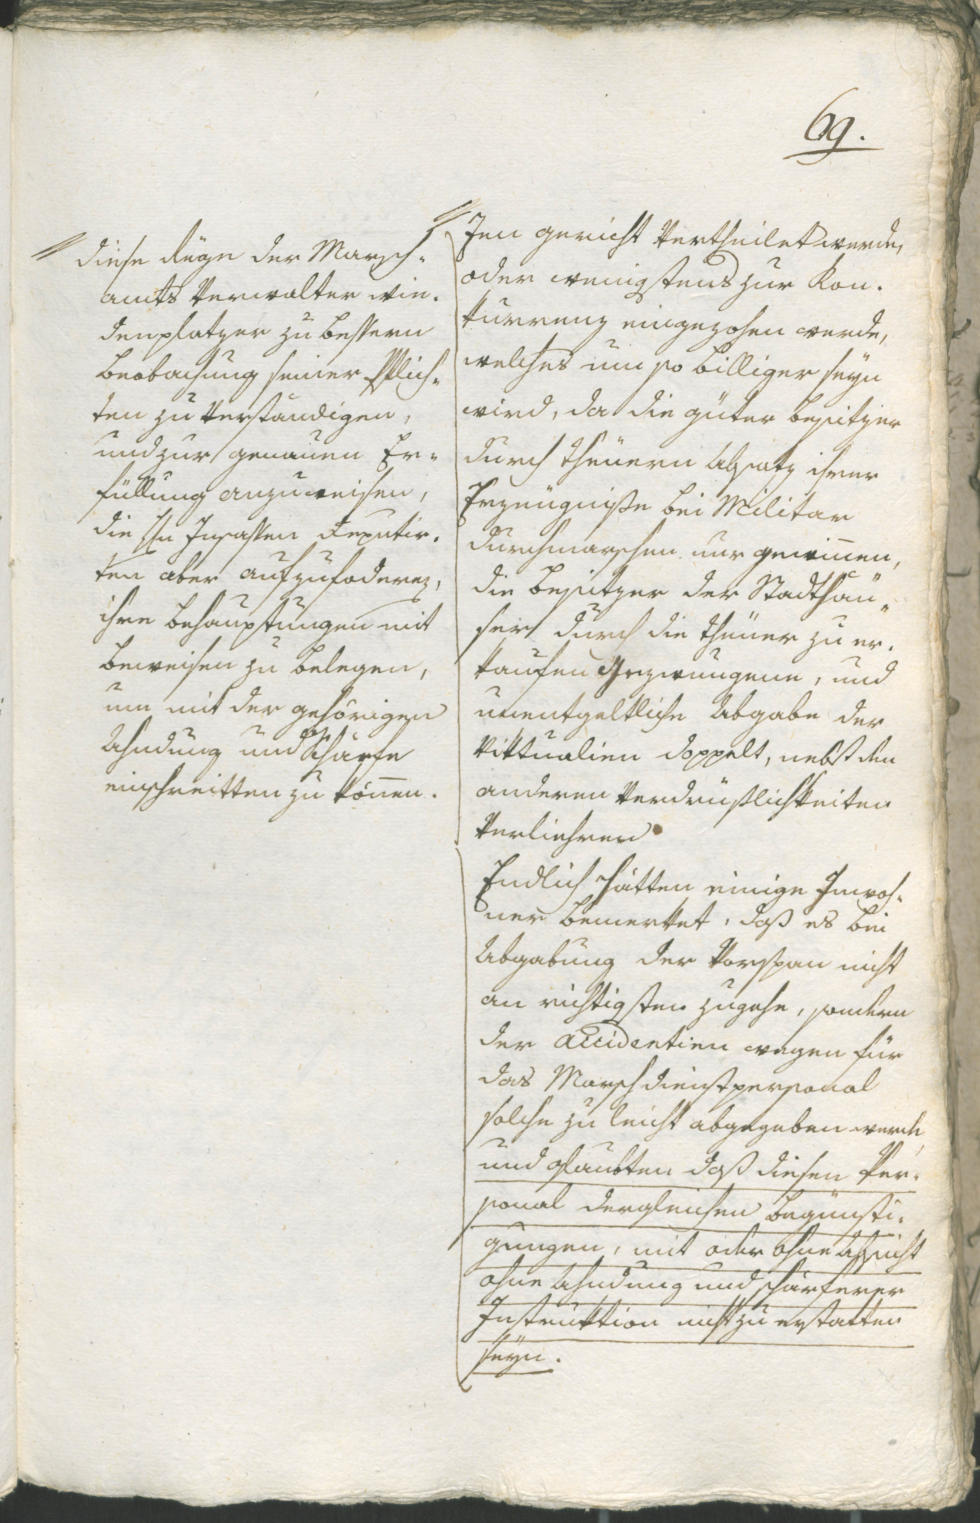 69.
diese Rüge der Marsch-
amts Verwalter Win-
denplatzer zu bessern
Beobachtung seiner Pflich-
ten zu verständigen,
und zur genauen Er-
füllung anzuweisen,
die Hn Insassen Deputir-
ten aber aufzufodern,
ihre Behauptungen mit
beweisen zu belegen,
um mit der gehörigen
Ahndung und Schärfe
einschreitten zu können.
gericht vertheilet werde,
oder wenigstens zur Kon-
kurrenz eingezohen werde,
welches um so billiger seyn
wird, da die güter besitzer
durch theuern Absatz ihrer
Erzeugniße bei Militar
durchmarschen nur gewinnen,
die besitzer der Stadthäu-
ser durch die theuer zu er-
kaufen gezwungene, und
unentgeltliche Abgabe der
Viktualien doppelt, nebst den
anderen Verdrüßlichkeiten
verliehren.
Endlich hätten einige Inwoh-
ner bemerket, daß es bei
Abgabung der Vorspan nicht
am richtigsten zugehe, sondern
der Accidentien wegen für
das Marsch dienstpersonal
solche zu leicht abgegeben werde,
und glaubten daß diesen Per-
sonal dergleichen Begünsti-
gungen, mit oder ohne Absicht
ohne Ahndung und schärferer
Instruktion nicht zu gestatten
seyn.